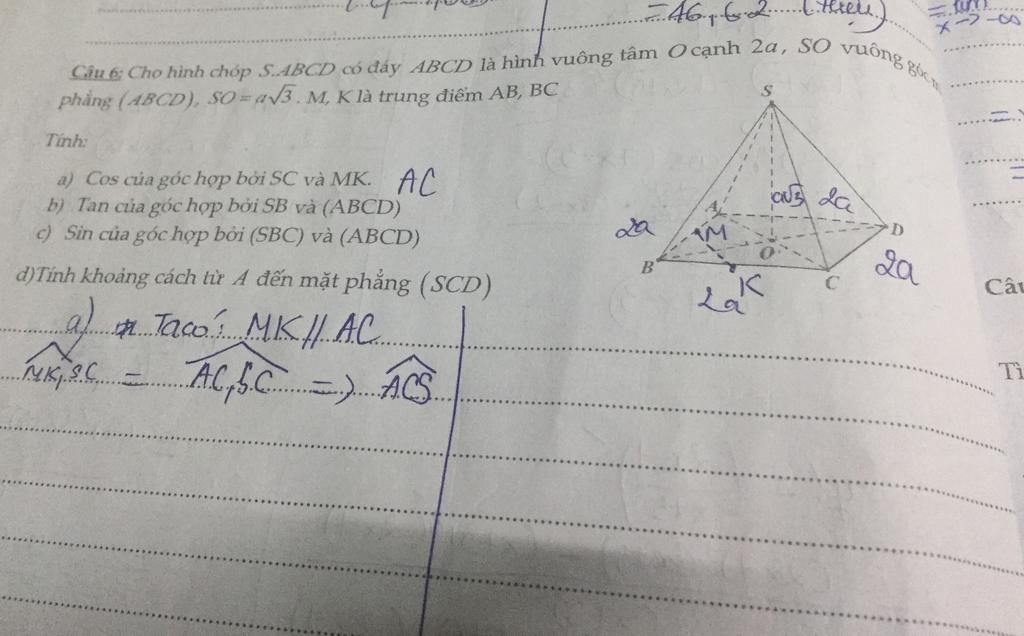 = 46,62 (triệu)
x -> -∞
Câu 6: Cho hình chóp S.ABCD có đáy ABCD là hình vuông tâm O cạnh 2a, SO vuông góc
phẳng (ABCD), SO = a√3. M, K là trung điểm AB, BC
Tính:
a) Cos của góc hợp bởi SC và MK. AC
b) Tan của góc hợp bởi SB và (ABCD)
c) Sin của góc hợp bởi (SBC) và (ABCD)
d)Tính khoảng cách từ A đến mặt phẳng (SCD)
S
a√3 2a
A
2a M D
O
B 2a
K C
2a
Câu
Tì
a) Ta có: MK // AC
MK, SC = AC, SC => ACS